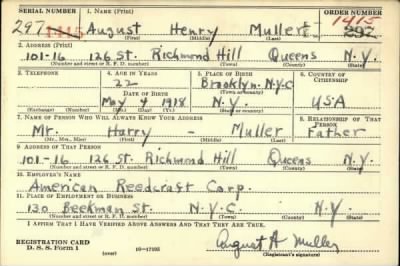 SERIAL NUMBER 1. NAME (Print) ORDER NUMBER
297 1415 August Henry Muller 1415 297
(First) (Middle) (Last)
2. ADDRESS (Print)
101-16 126 St. Richmond Hill Queens N.Y.
(Number and street or R. F. D. number) (Town) (County) (State)
3. TELEPHONE 4. AGE IN YEARS 5. PLACE OF BIRTH 6. COUNTRY OF CITIZENSHIP
22 Brooklyn. N.Y.C
DATE OF BIRTH (Town or county)
May 4 1918 N.Y. USA
(Exchange) (Number) (Mo.) (Day) (Yr.) (State or country)
7. NAME OF PERSON WHO WILL ALWAYS KNOW YOUR ADDRESS 8. RELATIONSHIP OF THAT PERSON
Mr. Harry - Muller Father
(Mr., Mrs., Miss) (First) (Middle) (Last)
9. ADDRESS OF THAT PERSON
101-16 126 St. Richmond Hill Queens N.Y.
(Number and street or R. F. D. number) (Town) (County) (State)
10. EMPLOYER'S NAME
American Reedcraft Corp.
11. PLACE OF EMPLOYMENT OR BUSINESS
130 Beekman St. N.Y.C. N.Y.
(Number and street or R. F. D. number) (Town) (County) (State)
I AFFIRM THAT I HAVE VERIFIED ABOVE ANSWERS AND THAT THEY ARE TRUE.
REGISTRATION CARD
D. S. S. Form 1 (over) 16-17105 August H Muller
(Registrant's signature)